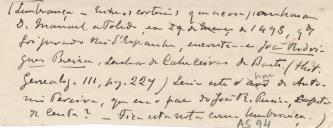 (Lembrança — Entre os cortesãos que acompanharam
D. Manuel a Toledo, em 29 de março de 1498, qdo
foi jurado Rei d'Espanha, encontra-se João Rodri-
gues Pereira, senhor de Cabeceiras de Basto (Hist.
Genealog. III, pag. 227) Seria este o avô de Anto-
nio Pereira, que era o pae do João R. Pereira, Capitão
de Ceuta? — Fica esta nota como lembrança.)
AS 94